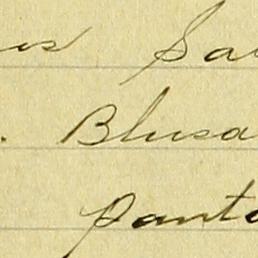 es Sa
. Blusa
panta